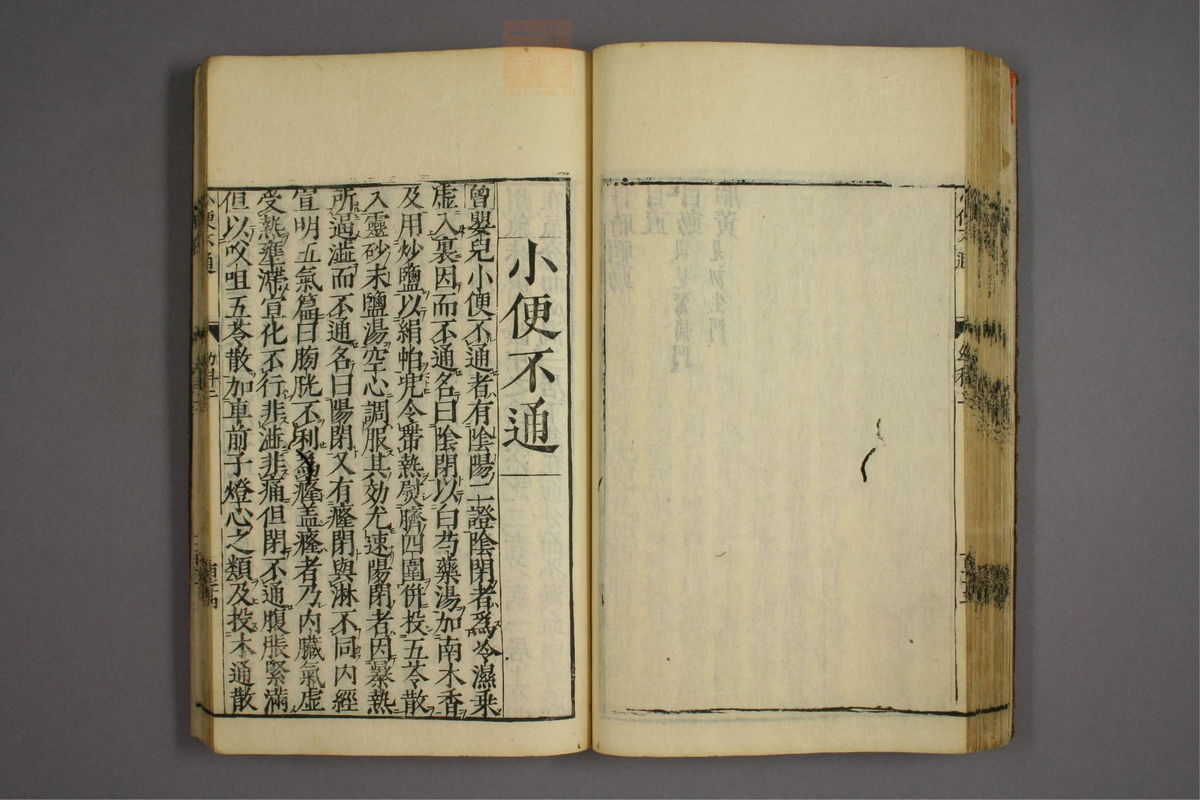 小便不通
曾嬰兒小便不通者有陰陽二證陰閉者爲冷濕乘
虛入裏因而不通名曰陰閉以白芍藥湯加南木香
及用炒鹽以絹帕兠令帶熱熨臍四圍併投五苓散
入靈砂末鹽湯空心調服其効尤速陽閉者因暴熱
所逼澁而不通名曰陽閉又有癃閉與淋不同內經
宣明五氣篇曰膀胱不利爲癃盖癃者乃內臟氣虛
受熱壅滯宣化不行非澁非痛但閉不通腹脹緊滿
但以㕮咀五苓散加車前子燈心之類及投木通散
小便不通
幼科二